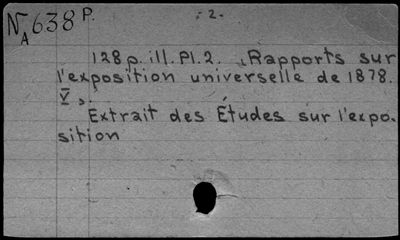 NA 638 P.
- 2.
128 p. ill. Pl. 2. „Rapports sur
l'exposition universelle de 1878.
V„.
Extrait des Études sur l'expo-
sition